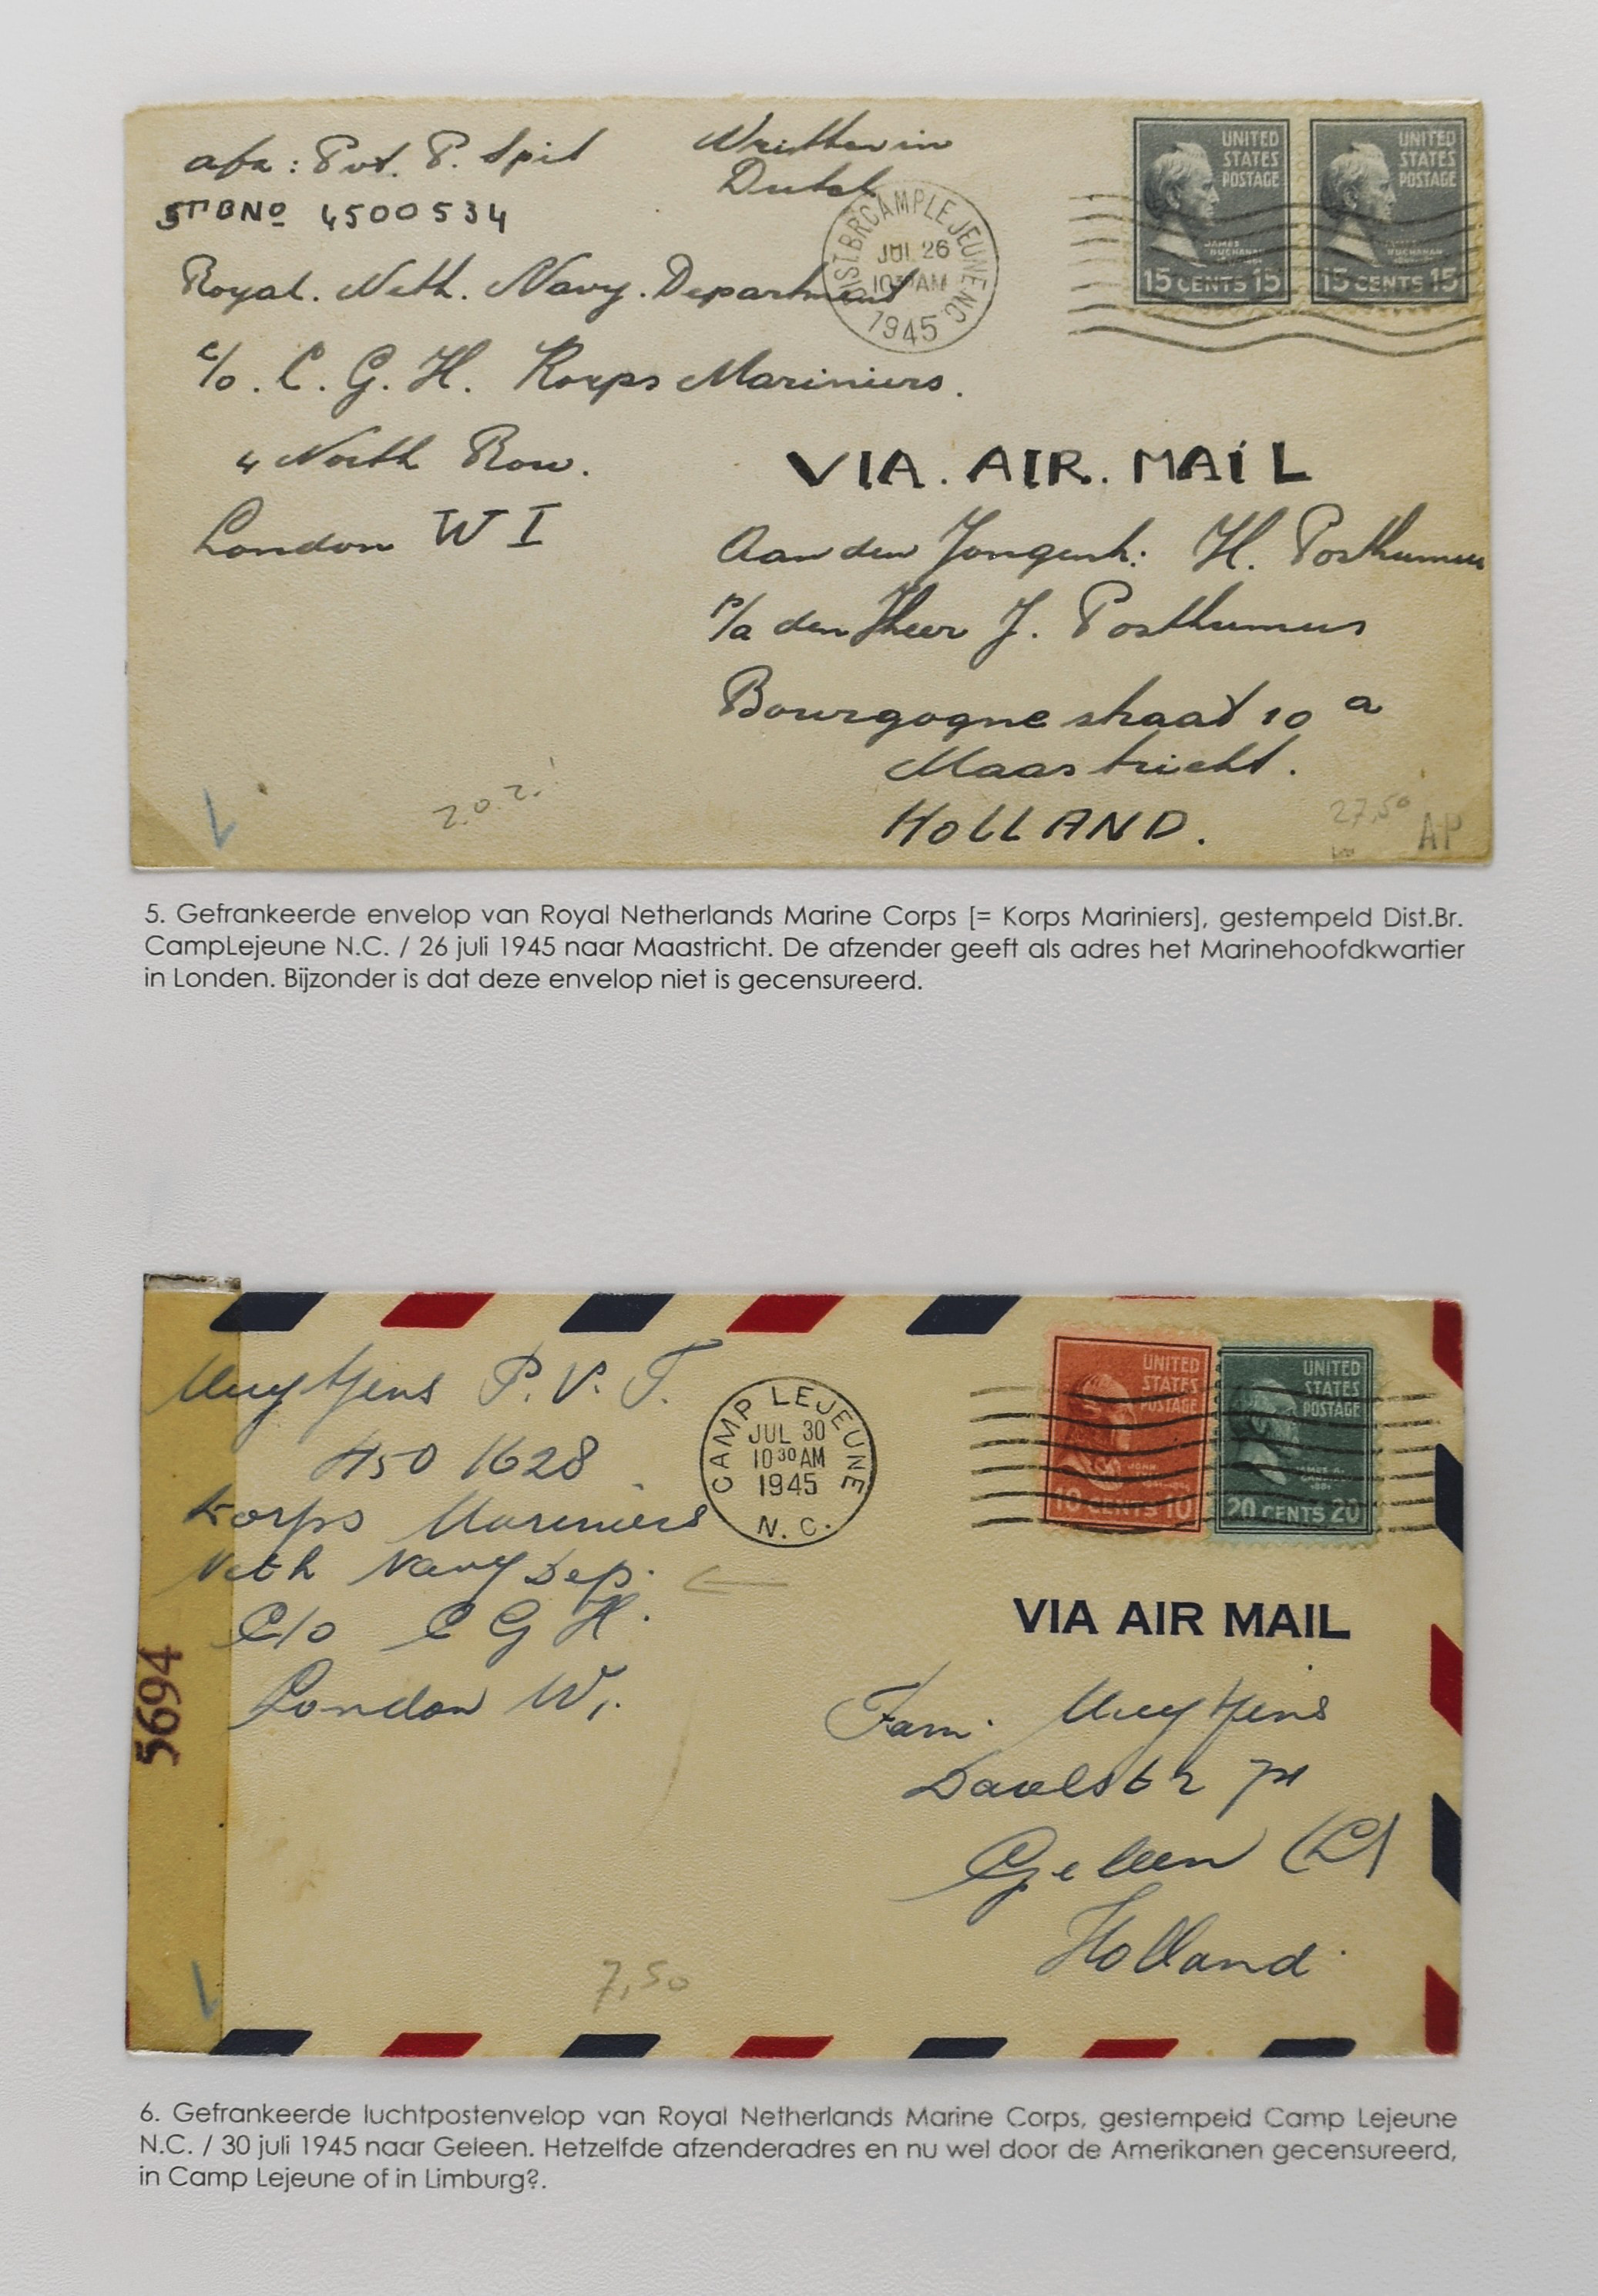 afz: Pvt. P. Spit
Written in
Dutch
STBNo 4500534
Royal. Neth. Navy. Department
c/o. C. G. H. Korps Mariniers.
4 North Row.
London W I
DIST.BR.CAMPLEJEUNE NC
JUL 26
10 30 AM
1945
UNITED
STATES
POSTAGE
JAMES
BUCHANAN
15 CENTS 15
UNITED
STATES
POSTAGE
JAMES
BUCHANAN
15 CENTS 15
VIA. AIR. MAIL
Aan den Jongenh: H. Posthumus
p/a den Heer J. Posthumus
Bourgogne straat 10 a
Maastricht.
HOLLAND.
z.o.z.!
27,50
AP
5. Gefrankeerde envelop van Royal Netherlands Marine Corps [= Korps Mariniers], gestempeld Dist.Br.
CampLejeune N.C. / 26 juli 1945 naar Maastricht. De afzender geeft als adres het Marinehoofdkwartier
in Londen. Bijzonder is dat deze envelop niet is gecensureerd.
Muytjens P. V. T.
450 1628
Korps Mariniers
Neth Navy Dep.
C/o C G H.
London W1.
5694
CAMP LEJEUNE
JUL 30
10 30 AM
1945
N. C.
UNITED
STATES
POSTAGE
JOHN
10 CENTS 10
UNITED
STATES
POSTAGE
JAMES A.
GARFIELD
20 CENTS 20
VIA AIR MAIL
Fam. Muytjens
Geleen (L)
Holland.
7,50
6. Gefrankeerde luchtpostenvelop van Royal Netherlands Marine Corps, gestempeld Camp Lejeune
N.C. / 30 juli 1945 naar Geleen. Hetzelfde afzenderadres en nu wel door de Amerikanen gecensureerd,
in Camp Lejeune of in Limburg?.